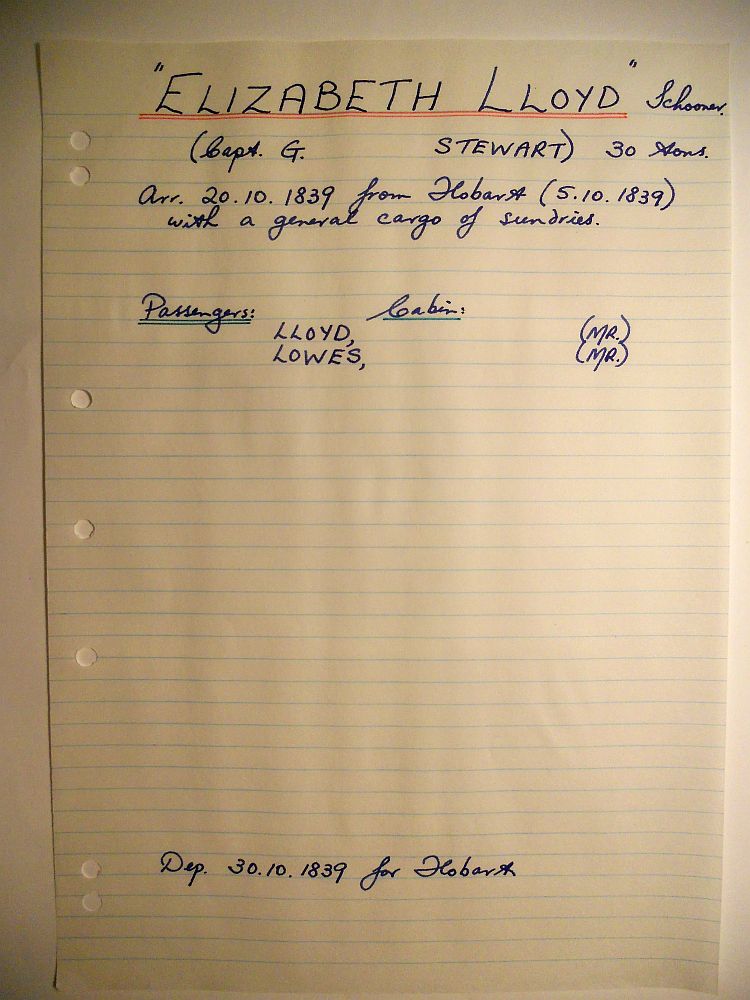 "ELIZABETH LLOYD" Schooner.
(Capt. G. STEWART) 30 tons.
Arr. 20.10.1839 from Hobart (5.10.1839)
with a general cargo of sundries.
Passengers: Cabin:
LLOYD, (MR.)
LOWES, (MR.)
Dep. 30.10.1839 for Hobart